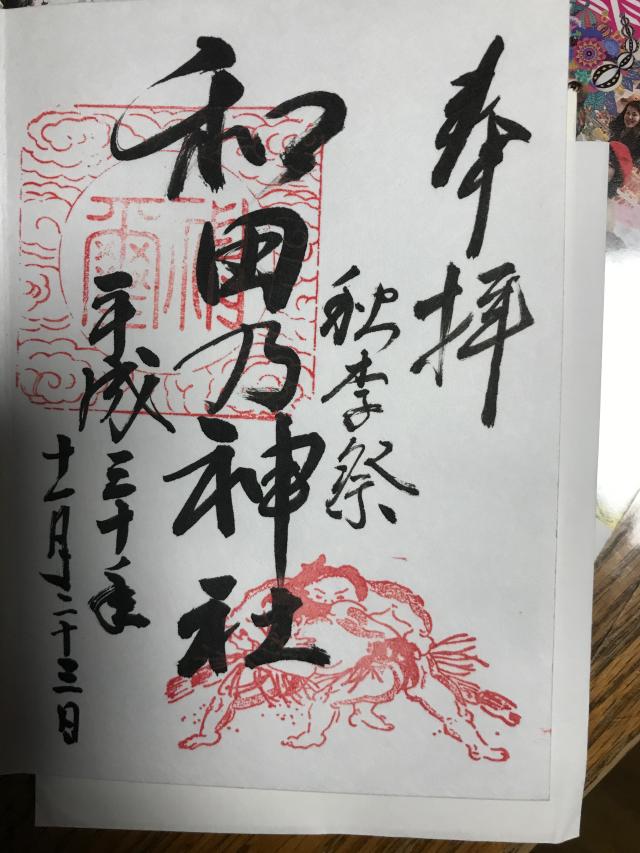 奉拝
秋季祭
和田乃神社
平成三十年
十一月二十三日